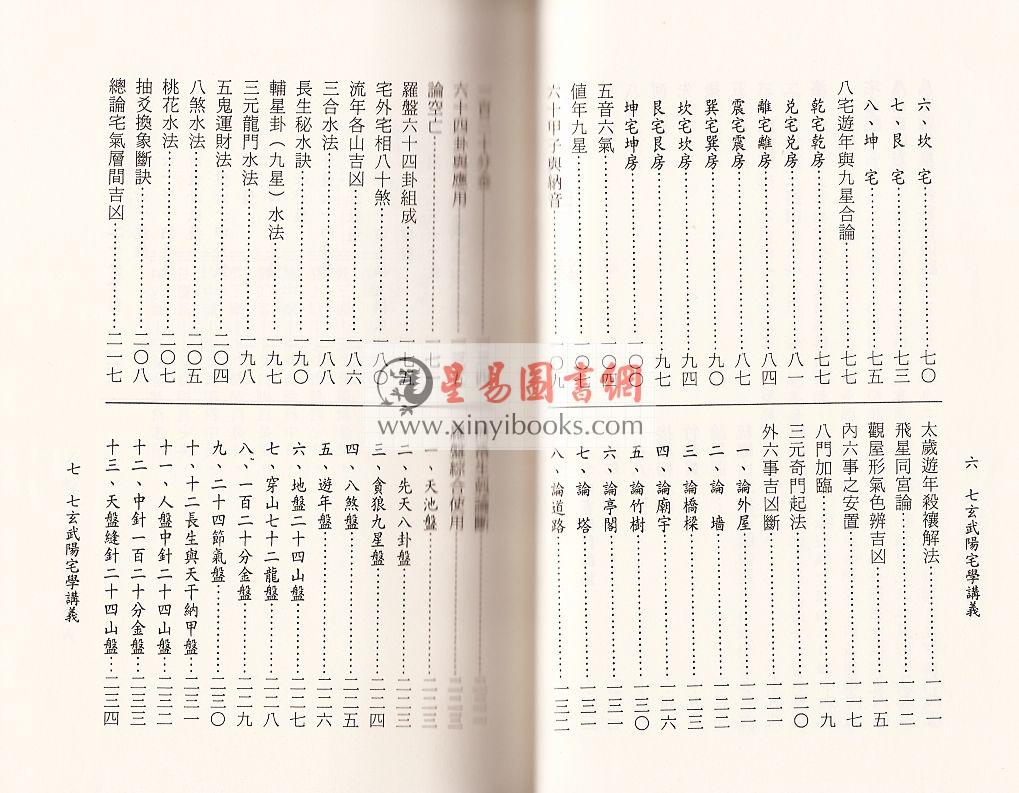 六、坎　宅……七〇
七、艮　宅……七三
八、坤　宅……七五
八宅遊年與九星合論……七七
乾宅乾房……七七
兌宅兌房……八一
離宅離房……八四
震宅震房……八七
巽宅巽房……九〇
坎宅坎房……九四
艮宅艮房……九七
坤宅坤房……一〇〇
五音六氣……一〇四
值年九星……一〇七
六十甲子與納音……一〇九
太歲遊年殺禳解法……一一一
飛星同宮論……一一二
觀屋形氣色辨吉凶……一一五
內六事之安置……一一七
八門加臨……一一九
三元奇門起法……一二〇
外六事吉凶斷……一二一
一、論外屋……一二一
二、論　墻……一二二
三、論橋樑……一二三
四、論廟宇……一二六
五、論竹樹……一三〇
六、論亭閣……一三一
七、論　塔……一三一
八、論道路……一三二
六　七玄武陽宅學講義
六十四卦與應用
論空亡
羅盤六十四卦組成……一七五
宅外宅相八十煞……一八〇
流年各山吉凶……一八六
三合水法……一八八
長生秘水訣……一九〇
輔星卦（九星）水法……一九七
三元龍門水法……一九八
五鬼運財法……二〇四
八煞水法……二〇五
桃花水法……二〇七
抽爻換象斷訣……二〇八
總論宅氣層間吉凶……二一七
盤綜合使用
一、天池盤
二、先天八卦盤……二二三
三、貪狼九星盤……二二四
四、八煞盤……二二五
五、遊年盤……二二六
六、地盤二十四山盤……二二七
七、穿山七十二龍盤……二二八
八、一百二十分金盤……二二九
九、二十四節氣盤……二三〇
十、十二長生與天干納甲盤……二三一
十一、人盤中針二十四山盤……二三二
十二、中針一百二十分金盤……二三三
十三、天盤縫針二十四山盤……二三四
七　七玄武陽宅學講義
星易圖書網
www.xinyibooks.com